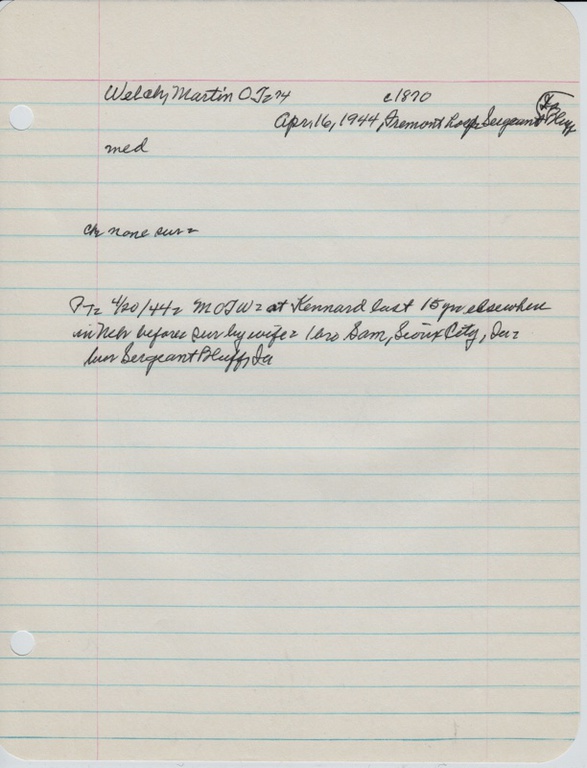 Welch, Martin O. J= 74 c1870
Apr 16, 1944, Fremont Hosp, Sergeant Bluff
Ia
med
ch none sur=
PT= 4/20/44= M O J W= at Kennard last 15 yrs elsewhere
in Nebr before= sur by wife= 1 bro Sam, Sioux City, Ia=
bur Sergeant Bluff, Ia